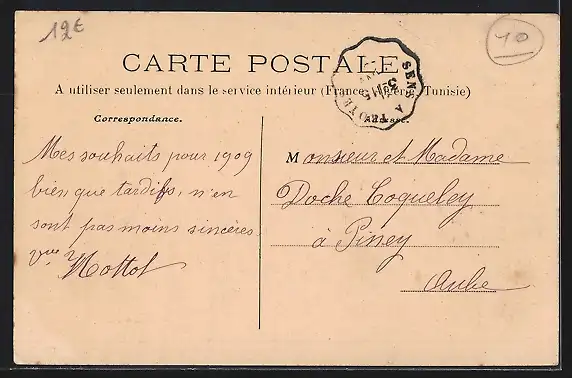 12€
10
CARTE POSTALE
A utiliser seulement dans le service intérieur (France, Algérie, Tunisie)
SENS A TROYES
Correspondance.
Adresse.
Mes souhaits pour 1909
bien que tardifs, n'en
sont pas moins sincères
Vve Mottot
Monsieur et Madame
Doche Coqueley
à Piney
Aube